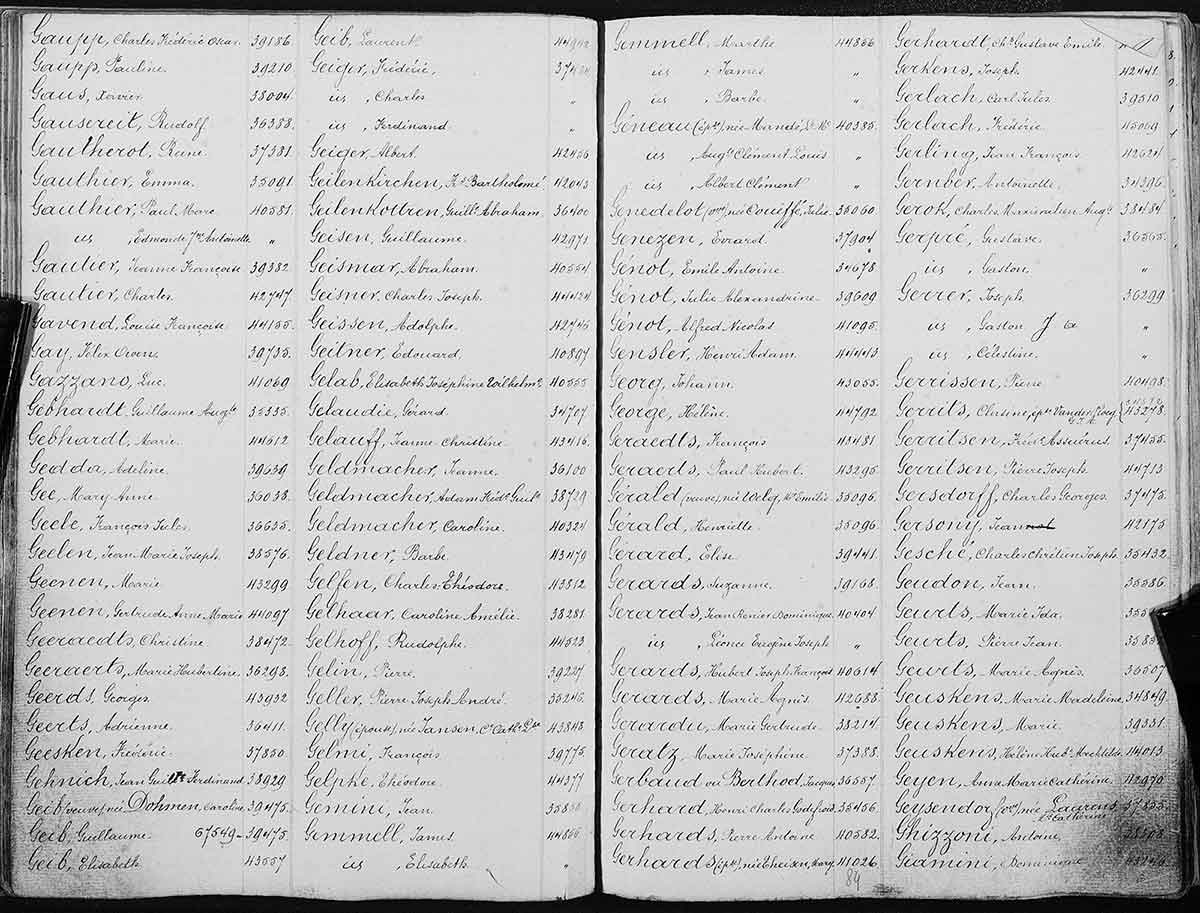 Gaupp, Charles Frédéric Oscar. 39186.
Gaupp, Pauline. 39210
Gaus, Xavier. 38004.
Gausereit, Rudolf. 36388.
Gautherot, 37381.
Gauthier, Emma. 35091.
Gauthier, Paul Marc. 40581.
id , Edmonde Antoinette "
Gautier, Jeanne Françoise 39382.
Gautier, Charles. 42747.
Gavend, Louise Françoise. 44155.
Gay, Félix 39735.
Gazzano, Luc. 41069
Gebhardt, Guillaume Augte 35335.
Gebhardt, Marie. 44612
Gedda, Adeline. 39639
Gee, Mary Anne 36038.
Geele, François Jules. 36635.
Geelen, Jean Marie Joseph. 38576.
Geenen, Marie 43299
Geenen, Gertrude Anne Marie 44097
Geeraedts, Christine. 38472.
Geeraerts, Marie Hubertine. 36298.
Geerds, Georges. 43932
Geerts, Adrienne. 36411.
Geesken, Frédéric. 37850
Gehnich, Jean Ferdinand 38929
Geib (veuve) née Dohmen, Caroline 39475.
Geib, Guillaume 67549- 39475.
Geib, Elisabeth 43557
Geib, Laurent.
Geiger, Frédéric,
id , Charles "
id , Ferdinand. "
Geiger, Albert. 42456
Geilenkirchen, Bartholomé 42043
Geilenkottren, Guill. Abraham. 36400
Geisen, Guillaume. 42971
Geismar, Abraham. 40554
Geisner, Charles Joseph. 44424
Geissen, Adolphe. 42745
Geitner, Edouard. 40897
Gelab, Elisabeth Joséphine Wilhelm. 40555
Gelaudie, Gérard. 34707
Gelauff, Jeanne Christine. 43416.
Geldmacher, Jeanne. 36100
Geldmacher, Adam Fréd. Guil. 38729
Geldmacher, Caroline. 40324
Geldner, Barbe 43470
Gelfen, Charles Théodore. 43812.
Gelhaar, Caroline Amélie. 38281.
Gelhoff, Rudolphe. 44523
Gelin, Pierre. 39227
Geller, Pierre Joseph André. 35246.
Gelly (épouse) née Jansen, 43843
Gelmi, François. 39775.
Gelpke, Théodore. 44377
Gemini, Jean.
Gemmell, James. 44866
id , Elisabeth. "
Gemmell, Marthe 44866
id , James "
id , Barbe "
Géneau (épse) née 40385.
id , Augte Clément Louis "
id , Albert Clément "
Genedelot (vve) née Couiffé, Julie. 35060
Genezen, Evrard. 37904
Génot, Emile Antoine. 34678
Génot, Julie Alexandrine. 39609
Génot, Alfred Nicolas 41095
Gensler, Henri Adam. 44443
Georg, Johann. 43055.
George, Hélène. 44792
Geraedts, François 43481
Geraerts, Paul Hubert. 43295
Gérald (veuve) née Emilie 35096.
Gérald, Henriette. 35096.
Gérard, Elise 39441
Gerards, Suzanne. 19168
Gerards, Jean Renier Dominique. 40404
id , Léonce Eugène Joseph "
Gerards, Hubert Joseph François 40614
Gerards, Marie Agnès. 42688
Gerardu, Marie Gertrude. 38214
Geratz, Marie Joséphine. 37388.
Gerbaud ou Berthod, Jacques 36557.
Gerhard, Henri Charles Godefroid. 35456
Gerhards, Pierre Antoine 40582.
Gerhards (épse), née Theisen, 41026.
84
Gerhardt, Chs Gustave Emile.
Gerkens, Joseph. 42441.
Gerlach, Carl Jules. 39510
Gerlach, Frédéric. 45069
Gerling, Jean François. 42624
Gernber, Antoinette. 34396
Gerok, Charles Maximilien Augte. 38484
Gerpré, Gustave. 36565.
id , Gaston. "
Gerrer, Joseph. 36299
id , Gaston "
id , Célestine. "
Gerrissen, Pierre 40498.
Gerrits, épse Vander 45278.
Gerritsen, Assuérus 37455.
Gerritsen, Pierre Joseph. 44713
Gersdorff, Charles Georges. 37475.
Gersony, Jean 42175
Gesché, Charles Chrétien Joseph. 35432.
Geudon, Jean. 35586.
Geurts, Marie Ida.
Geurts, Pierre Jean.
Geurts, Marie Agnès. 36507
Geuskens, Marie Madeleine. 34849.
Geuskens, Marie. 39331.
Geuskens, Hélène Mechtilde. 44013.
Geyen, Anna Marie Catherine. 42970
Geysendorf (vve) née Laurens, Catherine 37855
Ghizzoni, Antoine.
Giamini, Dominique